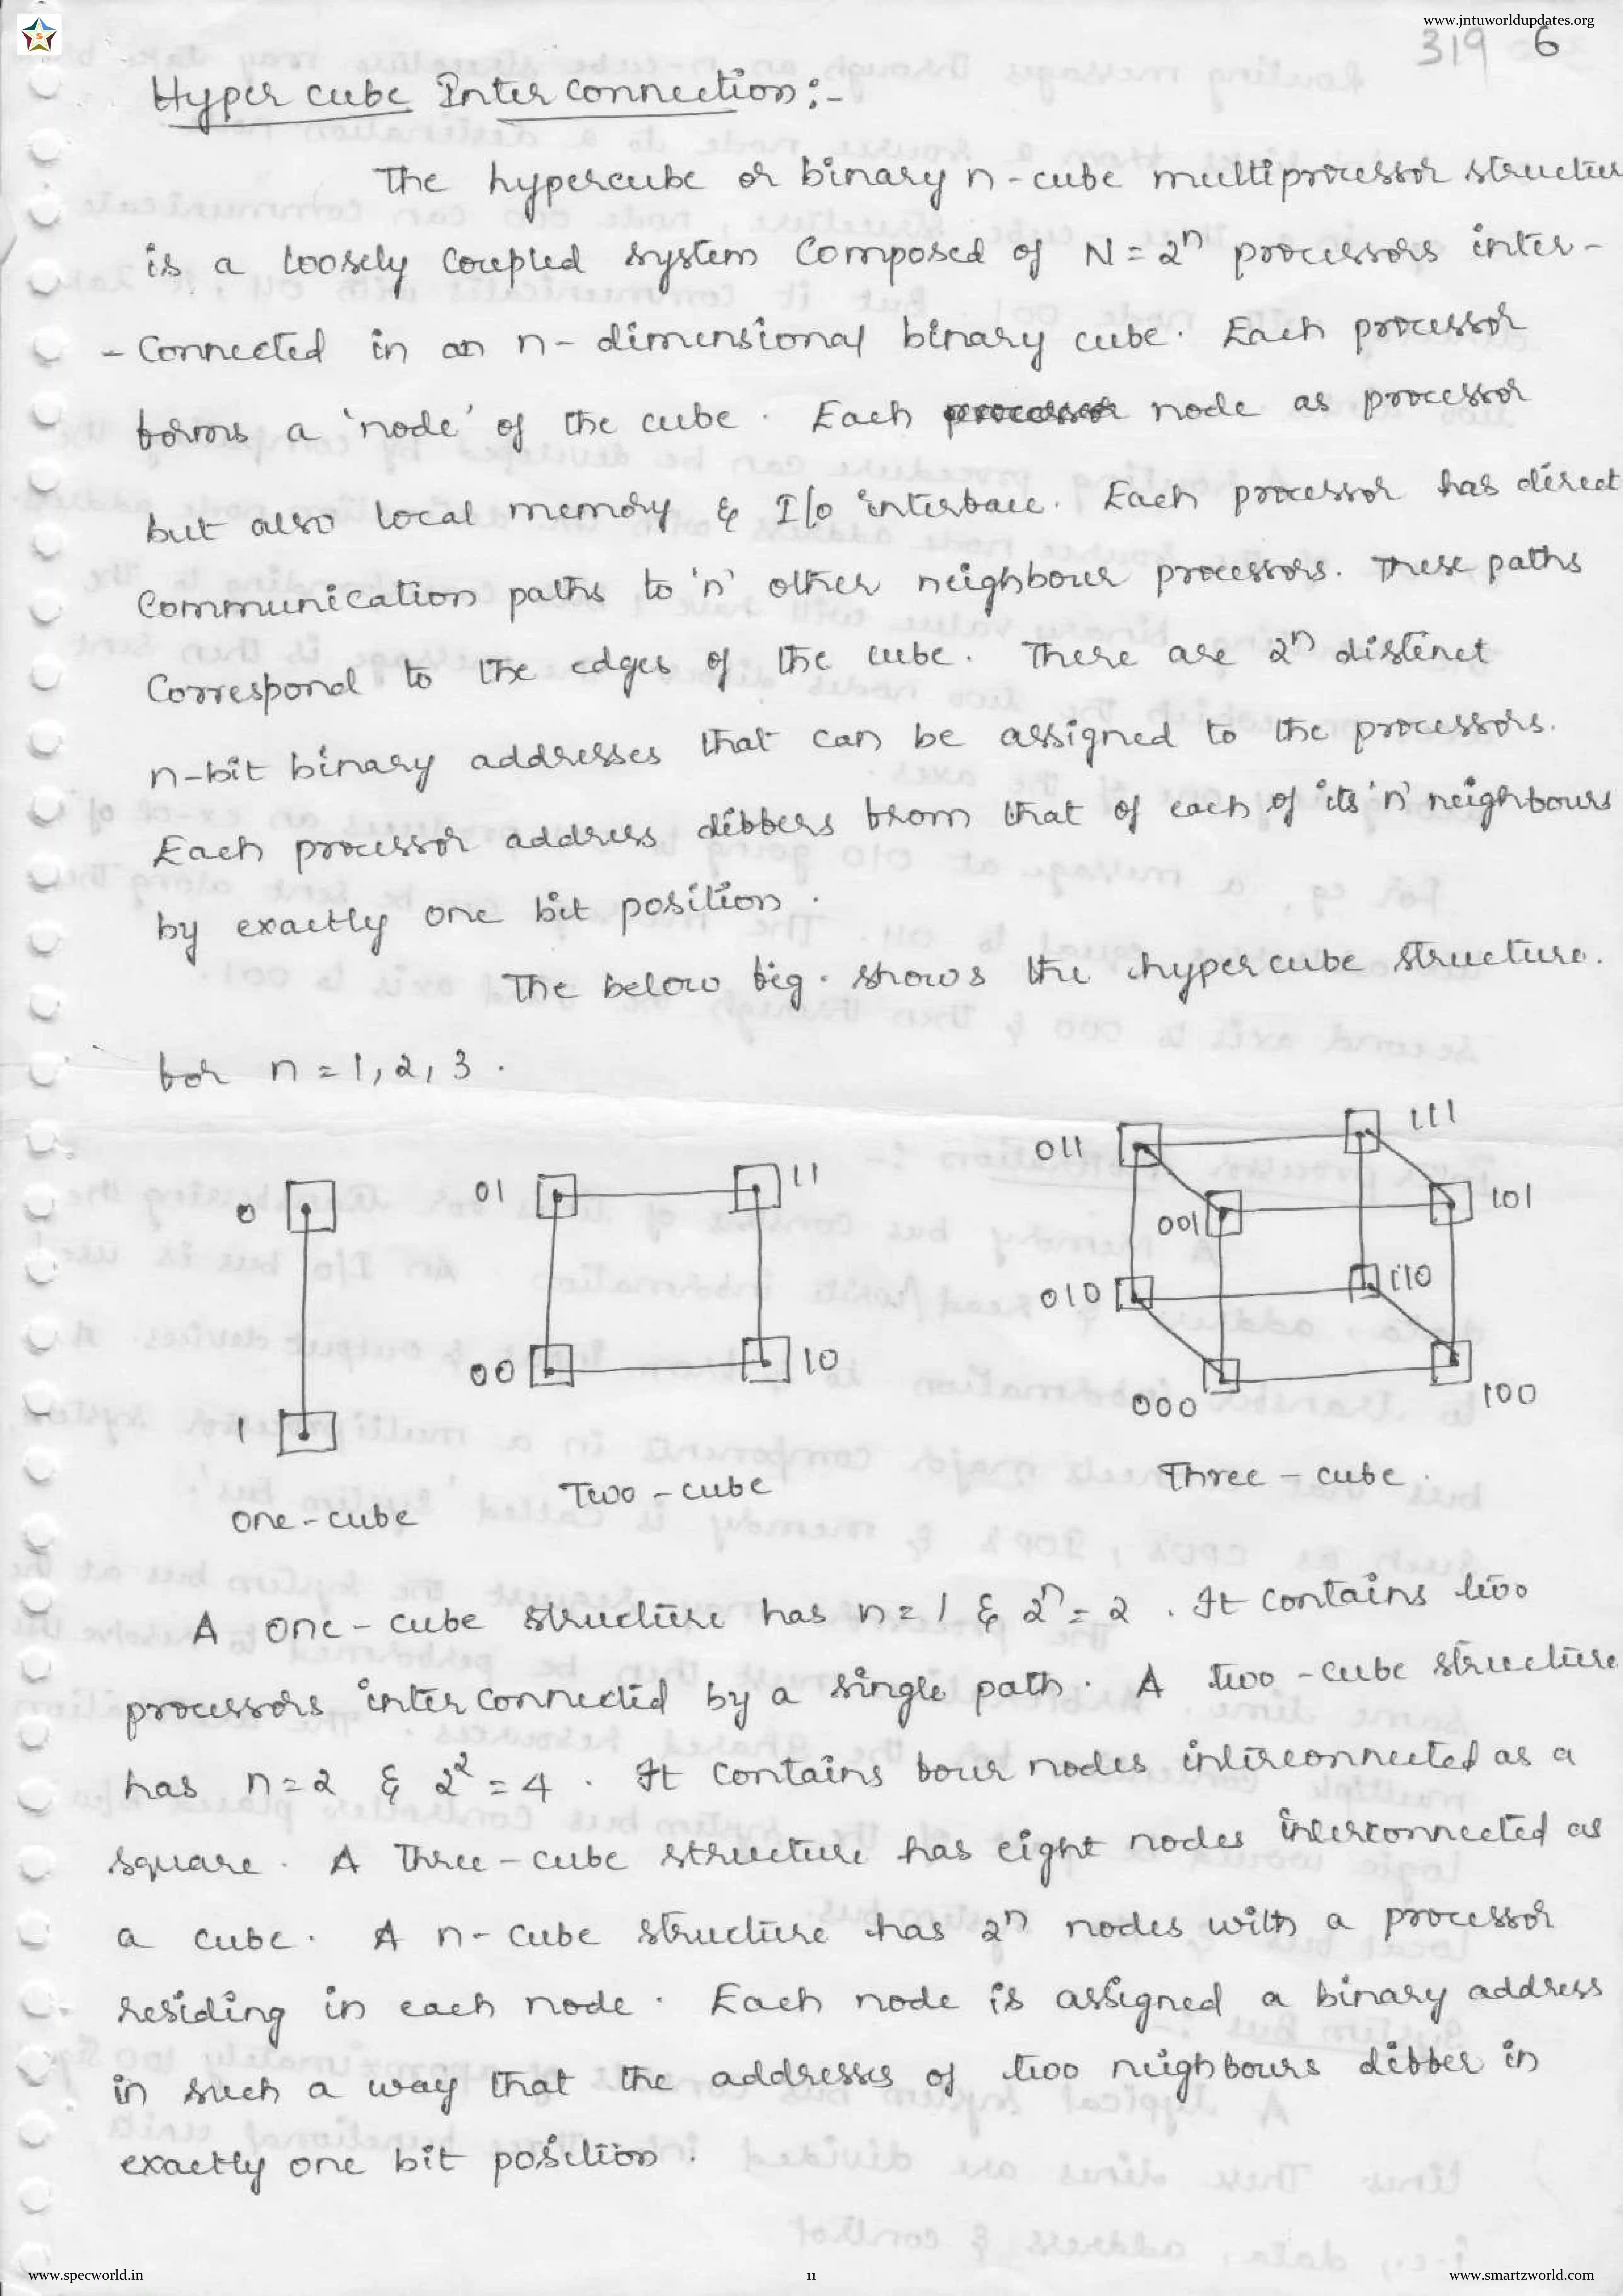 www.jntuworldupdates.org
319 6
Hyper cube Inter connection :-
The hypercube or binary n-cube multiprocessor structur
is a loosely coupled system composed of N = 2ⁿ processors inter-
- connected in an n-dimensional binary cube. Each processor
forms a 'node' of the cube. Each node as processor
but also local memory & I/o interface. Each processor has direct
communication paths to 'n' other neighbour processors. These paths
correspond to the edges of the cube. There are 2ⁿ distinct
n-bit binary addresses that can be assigned to the processors.
Each processor address differs from that of each of its 'n' neighbours
by exactly one bit position.
The below fig. shows the hypercube structure.
for n = 1, 2, 3.
0
1
one-cube
01 11
00 10
Two-cube
011 111
001 101
010 110
000 100
Three-cube.
A one-cube structure has n = 1 & 2ⁿ = 2. It contains two
processors inter connected by a single path. A two-cube structure
has n = 2 & 2² = 4. It contains four nodes interconnected as a
square. A Three-cube structure has eight nodes interconnected as
a cube. A n-cube structure has 2ⁿ nodes with a processor
residing in each node. Each node is assigned a binary address
in such a way that the addresses of two neighbours differ in
exactly one bit position.
www.specworld.in 11 www.smartzworld.com